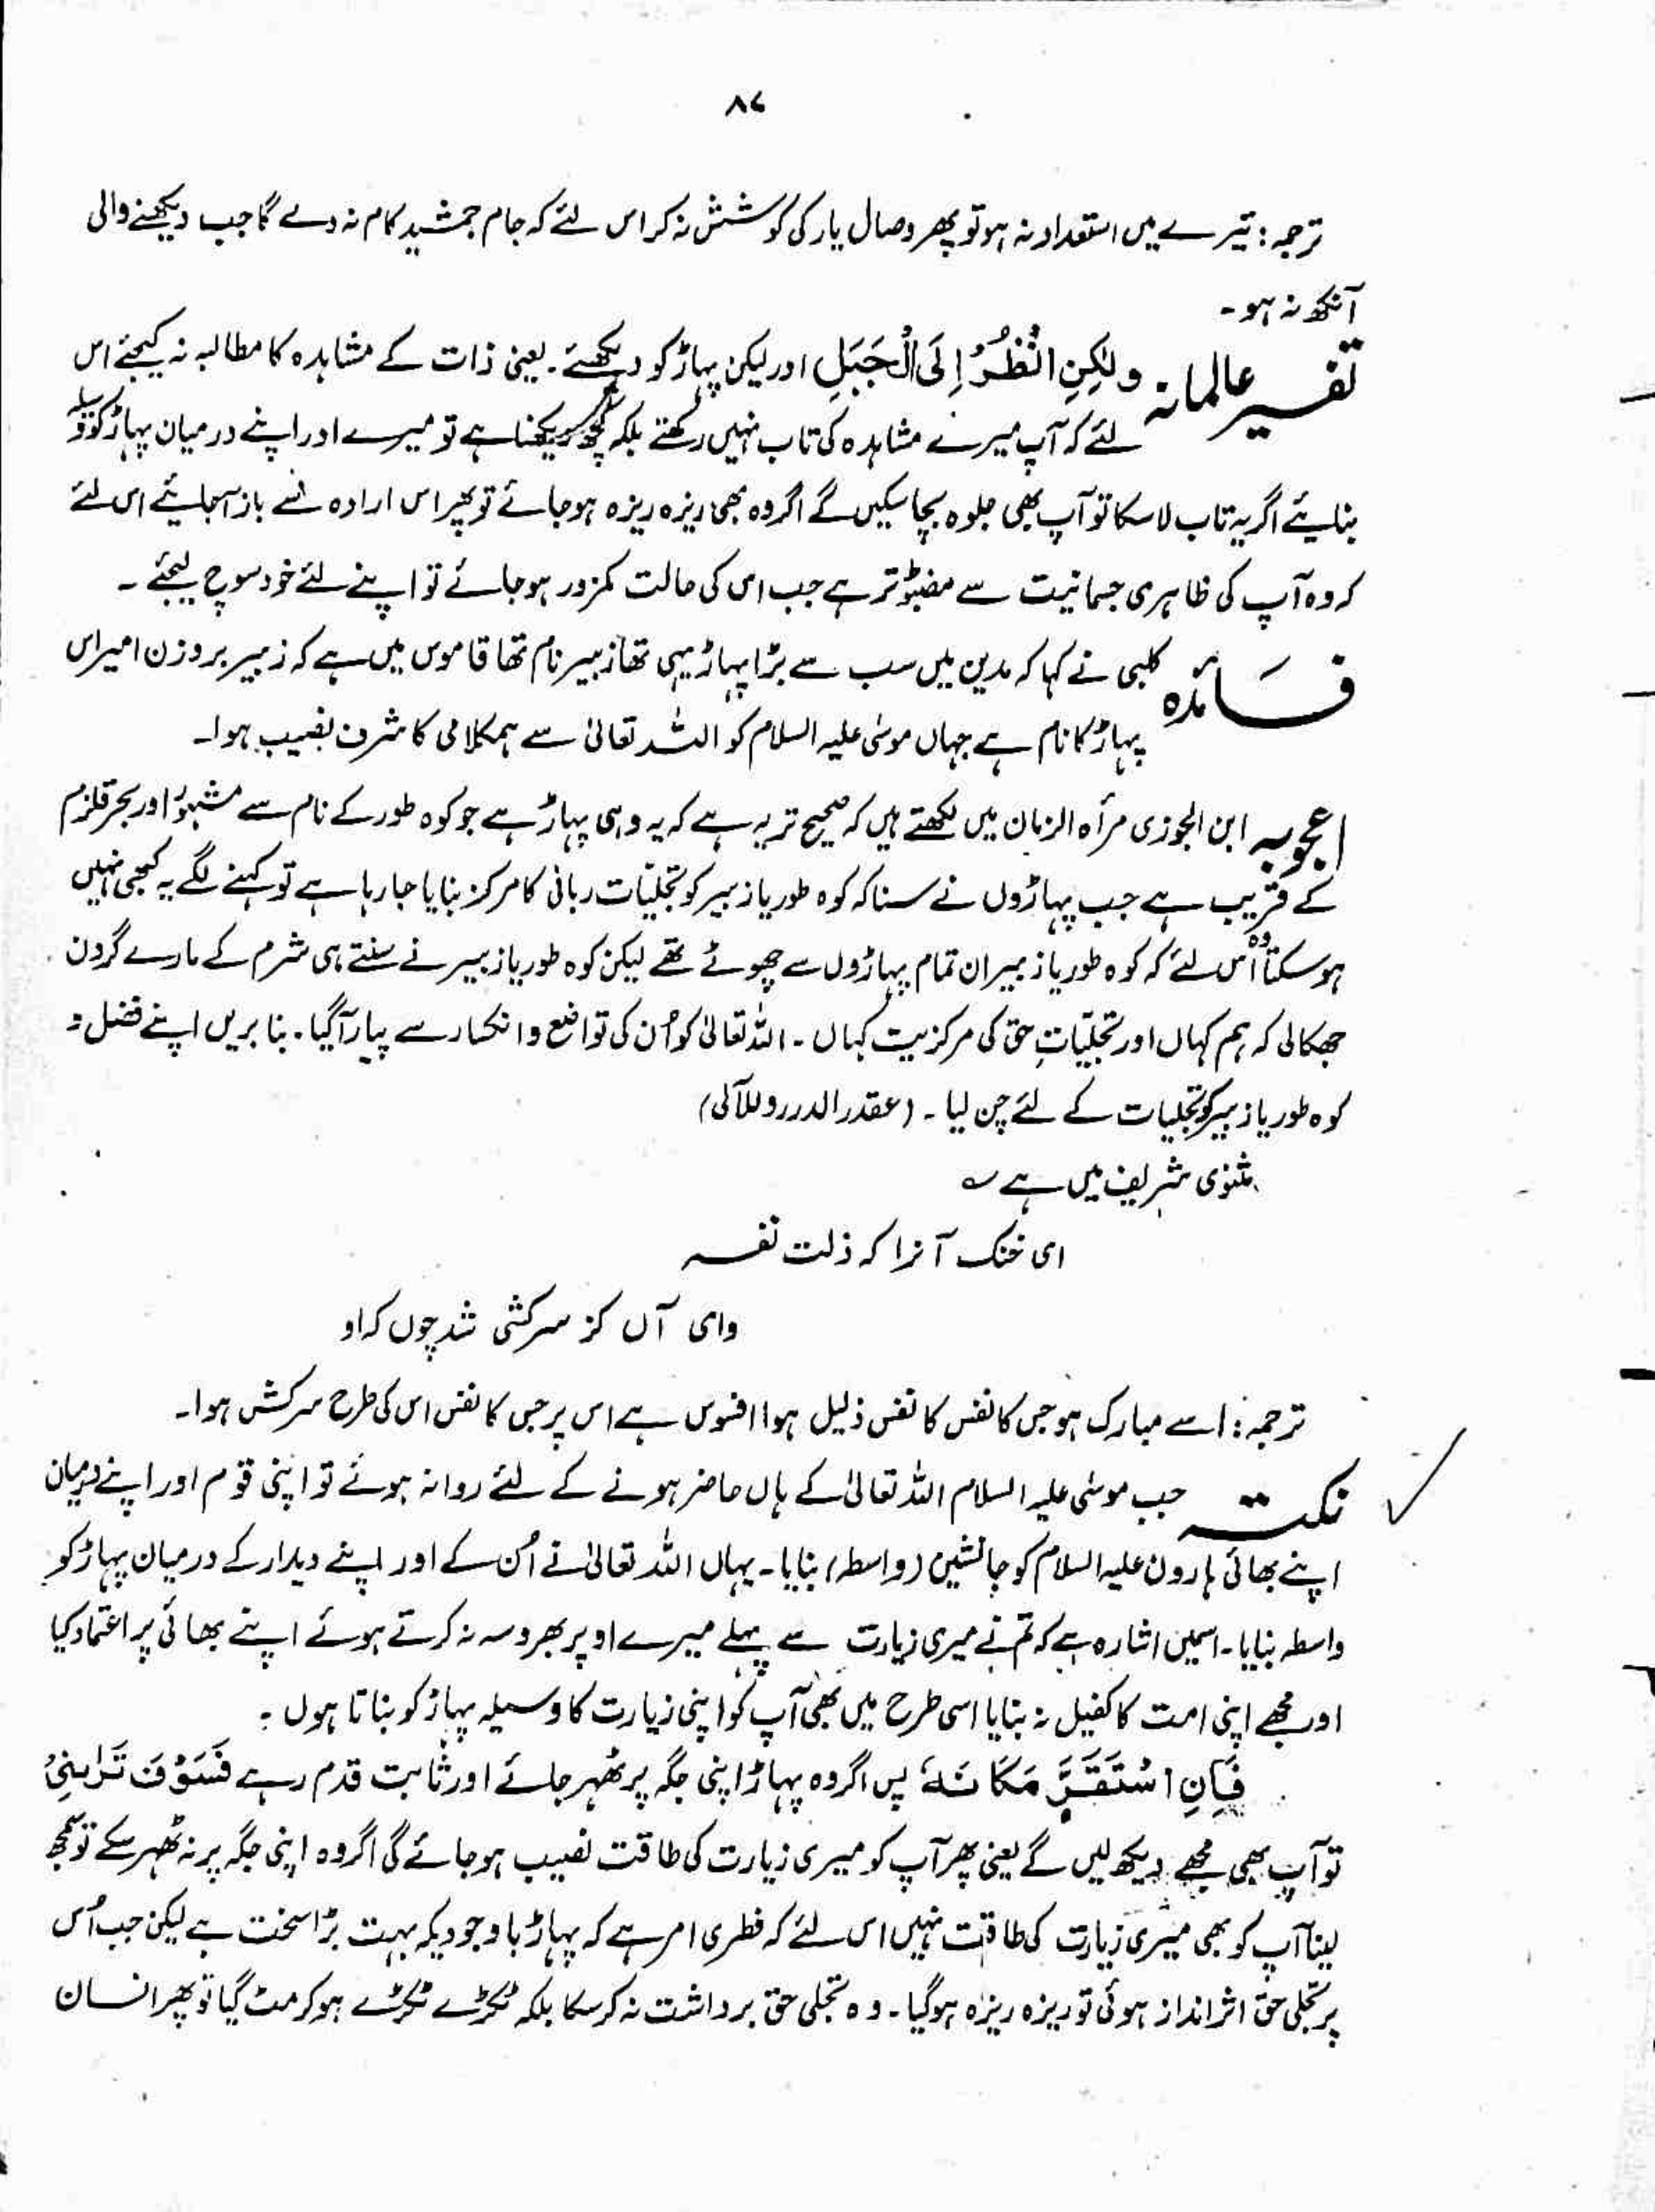 ۸۷
ترجمہ: تیرے میں استعداد نہ ہو تو پھر وصال یار کی کوشش نہ کر اس لئے کہ جام جمشید کام نہ دے گا جب دیکھنے والی
آنکھ نہ ہو۔
تفسیر عالمانہ ولٰکِنِ انْظُرْ اِلَی الْجَبَلِ اور لیکن پہاڑ کو دیکھئے۔ یعنی ذات کے مشاہدہ کا مطالبہ نہ کیجئے اس
لئے کہ آپ میرے مشاہدہ کی تاب نہیں رکھتے بلکہ کچھ دیکھنا ہے تو میرے اور اپنے درمیان پہاڑ کو وسیلہ
بنایئے اگر یہ تاب لا سکا تو آپ بھی جلوہ بچا سکیں گے اگر وہ بھی ریزہ ریزہ ہوجائے تو پھر اس ارادہ سے باز آجایئے اس لئے
کہ وہ آپ کی ظاہری جسمانیت سے مضبوط تر ہے جب اس کی حالت کمزور ہوجائے تو اپنے لئے خود سوچ لیجئے ۔
فائدہ کلبی نے کہا کہ مدین میں سب سے بڑا پہاڑ یہی تھا زبیر نام تھا قاموس میں ہے کہ زبیر بروزن امیر اس
پہاڑ کا نام ہے جہاں موسٰی علیہ السلام کو اللہ تعالیٰ سے ہمکلامی کا شرف نصیب ہوا۔
اعجوبہ ابن الجوزی مرأہ الزمان میں لکھتے ہیں کہ صحیح تر یہ ہے کہ یہ وہی پہاڑ ہے جو کوہ طور کے نام سے مشہور اور بحر قلزم
کے قریب ہے جب پہاڑوں نے سنا کہ کوہ طور یا زبیر کو تجلیّات ربانی کا مرکز بنایا جا رہا ہے تو کہنے لگے یہ کبھی نہیں
ہو سکتا وہ اس لئے کہ کوہ طور یا زبیر ان تمام پہاڑوں سے چھوٹے تھے لیکن کوہ طور یا زبیر نے سنتے ہی شرم کے مارے گردن
جھکالی کہ ہم کہاں اور تجلیّاتِ حق کی مرکزیت کہاں ۔ اللہ تعالیٰ کو اُن کی تواضع و انکسار سے پیار آگیا۔ بنا بریں اپنے فضل
کوہ طور یا زبیر کو تجلیات کے لئے چن لیا ۔ (عقدر الدرر وللآلی)
مثنوی شریف میں ہے ؎
ای خنک آنرا کہ ذلت نفسہ
وای آں کز سرکشی شد چوں کہ او
ترجمہ: اسے مبارک ہو جس کا نفس کا نفس ذلیل ہوا افسوس ہے اس پر جس کا نفس اس کی طرح سرکش ہوا۔
نکتہ جب موسٰی علیہ السلام اللہ تعالیٰ کے ہاں حاضر ہونے کے لئے روانہ ہوئے تو اپنی قوم اور اپنے درمیان
اپنے بھائی ہارون علیہ السلام کو جانشین (واسطہ) بنایا۔ یہاں اللہ تعالیٰ نے اُن کے اور اپنے دیدار کے درمیان پہاڑ کو
واسطہ بنایا۔ اسمیں اشارہ ہے کہ تم نے میری زیارت سے پہلے میرے اوپر بھروسہ نہ کرتے ہوئے اپنے بھائی پر اعتماد کیا
اور مجھے اپنی امت کا کفیل نہ بنایا اسی طرح میں بھی آپ کو اپنی زیارت کا وسیلہ پہاڑ کو بناتا ہوں ۔
فَاِنِ اسْتَقَرَّ مَکَانَہٗ پس اگر وہ پہاڑ اپنی جگہ پر ٹھہر جائے اور ثابت قدم رہے فَسَوْفَ تَرٰىنِیْ
تو آپ بھی مجھے دیکھ لیں گے یعنی پھر آپ کو میری زیارت کی طاقت نصیب ہوجائے گی اگر وہ اپنی جگہ پر نہ ٹھہر سکے تو سمجھ
لینا آپ کو بھی میری زیارت کی طاقت نہیں اس لئے کہ فطری امر ہے کہ پہاڑ باوجودیکہ بہت بڑا سخت ہے لیکن جب اُس
پر تجلی حق اثر انداز ہوئی تو ریزہ ریزہ ہوگیا ۔ وہ تجلی حق برداشت نہ کر سکا بلکہ ٹکڑے ٹکڑے ہو کر مٹ گیا تو پھر انسان